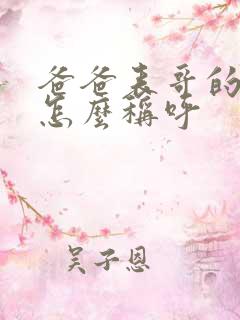 爸爸表哥的
怎麼稱呼
吴子恩